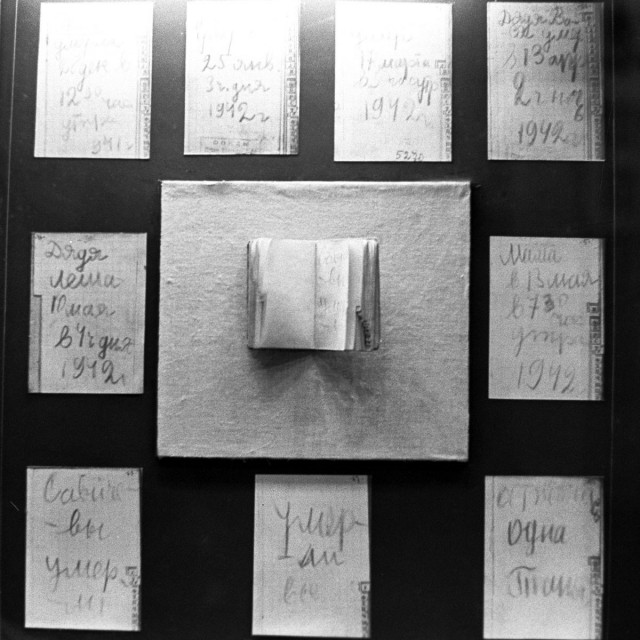 12 30 час
утра
1941 г
25 янв.
3 ч дня
1942 г
1942 г
5240
Дядя Вася
ум
13 апр
2 ч ночь
1942 г
Дядя
Леша
10 мая
в 4 ч дня
1942 г
Мама
в 13 мая
в 7 30
час
утра
1942
Савиче-
-вы
умер-
-ли
умер-
ли
все
осталась
одна
Таня